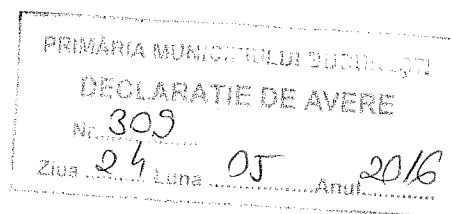 PRIMĂRIA MUNICIPIULUI BUCUREŞTI
DECLARATIE DE AVERE
Nr. 309
Ziua 24 Luna 05 Anul 2016